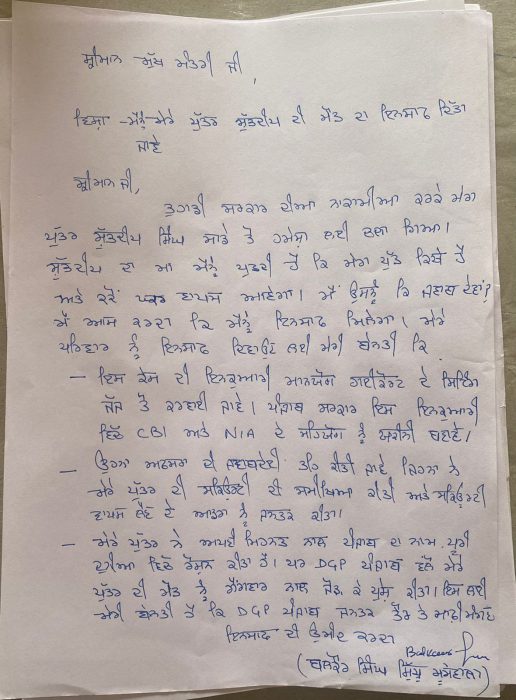 ਸ਼੍ਰੀਮਾਨ ਮੁੱਖ ਮੰਤਰੀ ਜੀ,
ਵਿਸ਼ਾ - ਮੈਨੂੰ ਮੇਰੇ ਪੁੱਤਰ ਸ਼ੁੱਭਦੀਪ ਦੀ ਮੌਤ ਦਾ ਇਨਸਾਫ ਦਿੱਤਾ
ਜਾਵੇ
ਸ਼੍ਰੀਮਾਨ ਜੀ,
ਤੁਹਾਡੀ ਸਰਕਾਰ ਦੀਆ ਨਾਕਾਮੀਆ ਕਰਕੇ ਮੇਰਾ
ਪੁੱਤਰ ਸ਼ੁੱਭਦੀਪ ਸਿੰਘ ਸਾਡੇ ਤੋਂ ਹਮੇਸ਼ਾ ਲਈ ਚਲਾ ਗਿਆ।
ਸ਼ੁੱਭਦੀਪ ਦਾ ਮਾਂ ਮੈਨੂੰ ਪੁਛਦੀ ਹੈ ਕਿ ਮੇਰਾ ਪੁੱਤ ਕਿਥੇ ਹੈ
ਅਤੇ ਕਦੋਂ ਵਾਪਸ ਆਏਗਾ। ਮੈਂ ਉਸਨੂੰ ਕਿ ਜਵਾਬ ਦੇਵਾਂ?
ਮੈਂ ਆਸ ਕਰਦਾ ਕਿ ਮੈਨੂੰ ਇਨਸਾਫ ਮਿਲੇਗਾ। ਮੇਰੇ
ਪਰਿਵਾਰ ਨੂੰ ਇਨਸਾਫ ਦਿਵਾਉਣ ਲਈ ਮੇਰੀ ਬੇਨਤੀ ਕਿ
- ਇਸ ਕੇਸ ਦੀ ਇਨਕੁਆਰੀ ਮਾਨਯੋਗ ਹਾਈਕੋਰਟ ਦੇ ਸਿਟਿੰਗ
ਜੱਜ ਤੋਂ ਕਰਵਾਈ ਜਾਵੇ। ਪੰਜਾਬ ਸਰਕਾਰ ਇਸ ਇਨਕੁਆਰੀ
ਵਿਚ CBI ਅਤੇ NIA ਦੇ ਸਹਿਯੋਗ ਨੂੰ ਯਕੀਨੀ ਬਣਾਵੇ।
- ਉਹਨਾ ਅਫਸਰਾ ਦੀ ਜਵਾਬਦੇਹੀ ਤਹਿ ਕੀਤੀ ਜਾਵੇ ਜਿਹਨਾ ਨੇ
ਮੇਰੇ ਪੁੱਤਰ ਦੀ ਸਕਿਉਰਟੀ ਦੀ ਸਮੀਖਿਆ ਕੀਤੀ ਅਤੇ ਸਕਿਉਰਟੀ
ਵਾਪਸ ਲੈਣ ਦੇ ਆਡਰਾ ਨੂੰ ਜਨਤਕ ਕੀਤਾ।
- ਮੇਰੇ ਪੁੱਤਰ ਨੇ ਆਪਣੀ ਮਿਹਨਤ ਨਾਲ ਪੰਜਾਬ ਦਾ ਨਾਮ ਪੂਰੀ
ਦੁਨੀਆ ਵਿਚ ਰੌਸ਼ਨ ਕੀਤਾ ਹੈ। ਪਰ DGP ਪੰਜਾਬ ਵਲੋਂ ਮੇਰੇ
ਪੁੱਤਰ ਦੀ ਮੌਤ ਨੂੰ ਗੈਂਗਵਾਰ ਨਾਲ ਜੋੜ ਕੇ ਪੇਸ਼ ਕੀਤਾ। ਇਸ ਲਈ
ਮੇਰੀ ਬੇਨਤੀ ਹੈ ਕਿ DGP ਪੰਜਾਬ ਜਨਤਕ ਤੌਰ ਤੇ ਮਾਫੀ ਮੰਗਣ
ਇਨਸਾਫ ਦੀ ਉਮੀਦ ਕਰਦਾ
Balkaur
(ਬਲਕੌਰ ਸਿੰਘ ਸਿੱਧੂ ਮੂਸੇਵਾਲਾ)